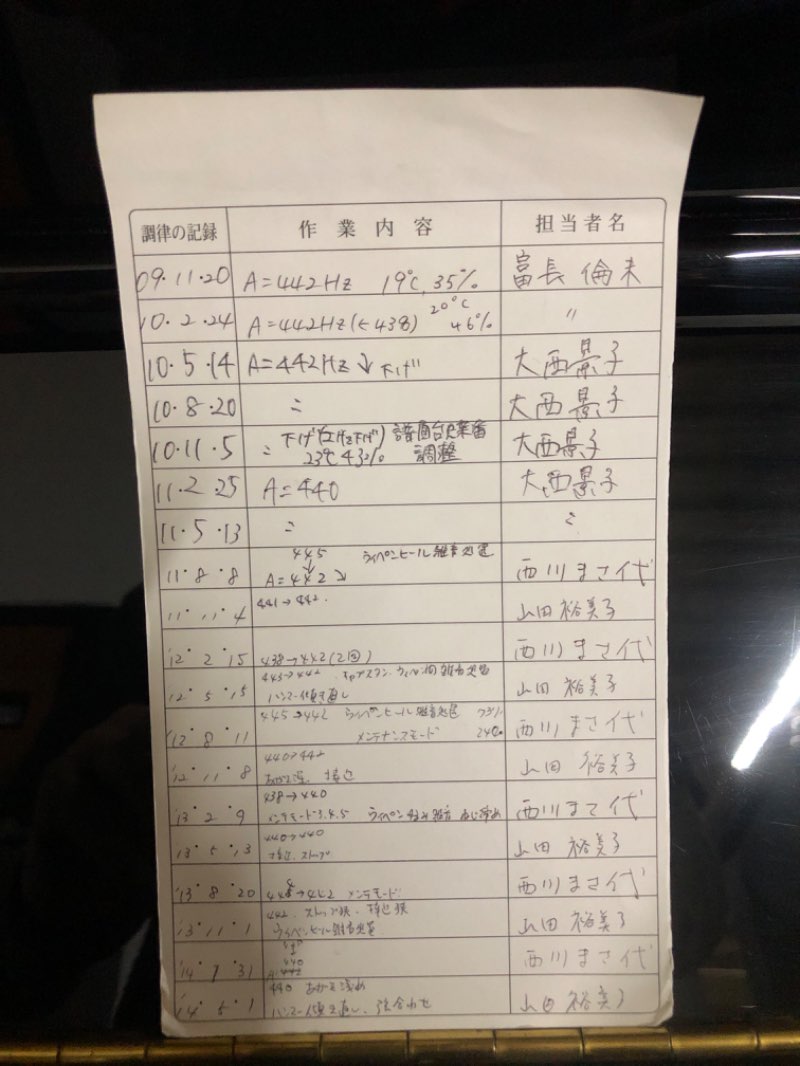 調律の記録 作業内容 担当者名
09・11・20 A=442Hz 19℃, 35% 富長 倫未
10・2・24 A=442Hz(←438) 20℃ 46% 〃
10・5・14 A=442Hz↘下げ 大西景子
10・8・20 〃 大西景子
10・11・5 〃 下げ(2Hz下げ)
23℃ 43% 調整 大西景子
11・2・25 A=440 大西景子
11・5・13 〃 〃
445 ウィペンヒール雑音処置
↓
11・8・8 A=442↘ 西川まさ代
11・11・4 441→442. 山田裕美子
'12・2・15 438→442(2回) 西川まさ代
443→442 キャプスタン、ウィペン間雑音処置
12・5・15 ハンマー傾き直し 山田裕美子
445→442 ウィペンヒール雑音処置
'12・8・11 メンテナンスモード 西川まさ代
440→442
'12・11・8 山田裕美子
438→440
'13・2・9 メンテモード3.4.5 ウィペン 雑音 ねじ締め 西川まさ代
440→440
13・5・13 ストップ 山田裕美子
'13・8・20 →442 メンテモード 西川まさ代
442.
'13・11・1 ウィペンヒール雑音処置 山田裕美子
440
'14・1・31 A=442 西川まさ代
440 あがき深め
'14・5・1 ハンマー傾き直し、弦合わせ 山田裕美子